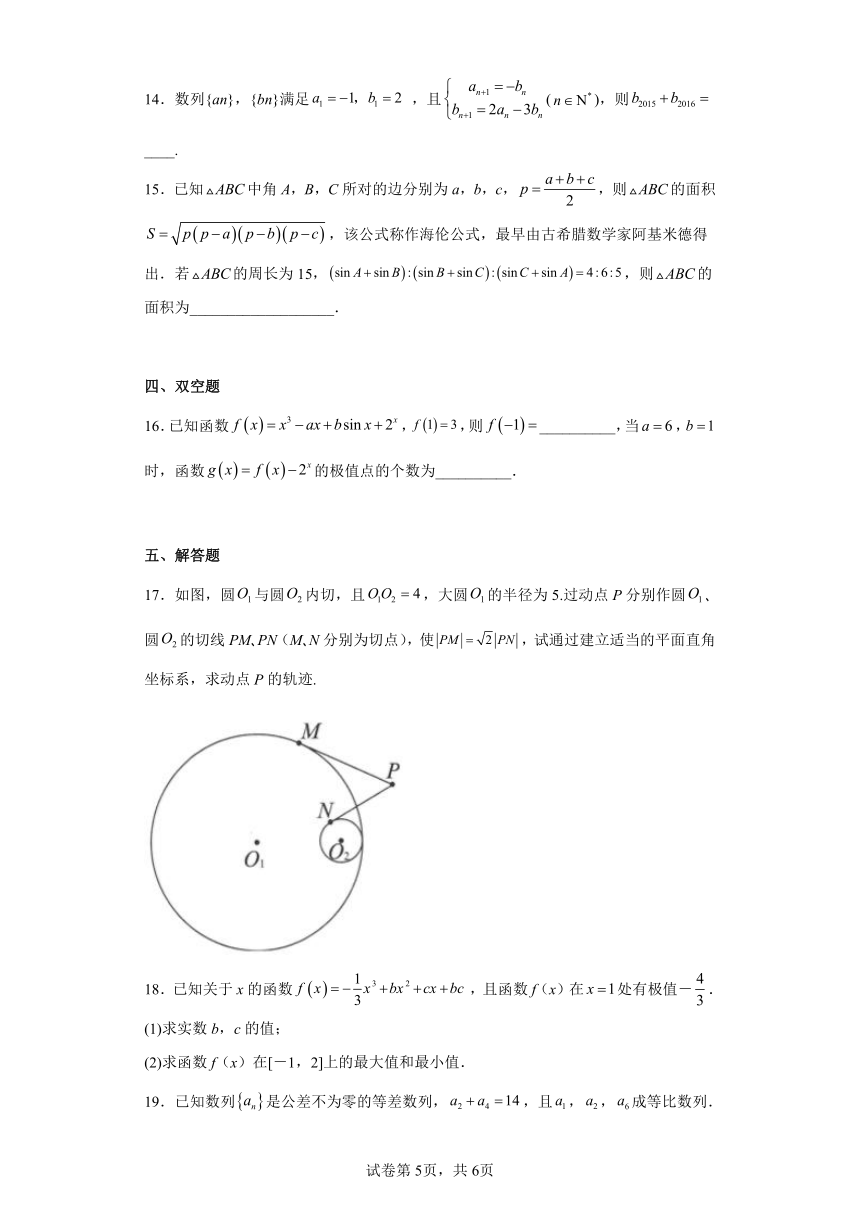 14．数列{an}，{bn}满足 a₁ = −1，b₁ = 2 ，且 { aₙ₊₁ = −bₙ ; bₙ₊₁ = 2aₙ − 3bₙ ( n ∈ N* )，则 b₂₀₁₅ + b₂₀₁₆ =
____.
15．已知△ABC中角 A，B，C 所对的边分别为 a，b，c， p = (a+b+c)/2 ，则△ABC的面积
S = √(p(p−a)(p−b)(p−c)) ，该公式称作海伦公式，最早由古希腊数学家阿基米德得
出．若△ABC的周长为 15， (sin A + sin B):(sin B + sin C):(sin C + sin A) = 4:6:5 ，则△ABC的
面积为___________________．
四、双空题
16．已知函数 f(x) = x³ − ax + b sin x + 2ˣ , f(1) = 3 ,则 f(−1) = __________,当 a = 6 , b = 1
时，函数 g(x) = f(x) − 2ˣ 的极值点的个数为__________．
五、解答题
17．如图，圆O₁与圆O₂内切，且O₁O₂ = 4，大圆O₁的半径为 5.过动点 P 分别作圆O₁、
圆O₂的切线 PM PN（M N 分别为切点），使|PM| = √2|PN|，试通过建立适当的平面直角
坐标系，求动点 P 的轨迹.
M
P
N
O₁
O₂
18．已知关于 x 的函数 f(x) = −1/3 x³ + bx² + cx + bc ，且函数 f（x）在 x = 1 处有极值－4/3．
(1)求实数 b，c 的值；
(2)求函数 f（x）在[－1，2]上的最大值和最小值．
19．已知数列{aₙ}是公差不为零的等差数列，a₂ + a₄ = 14 ，且 a₁ ，a₂ ，a₆ 成等比数列．
试卷第 5页，共 6页